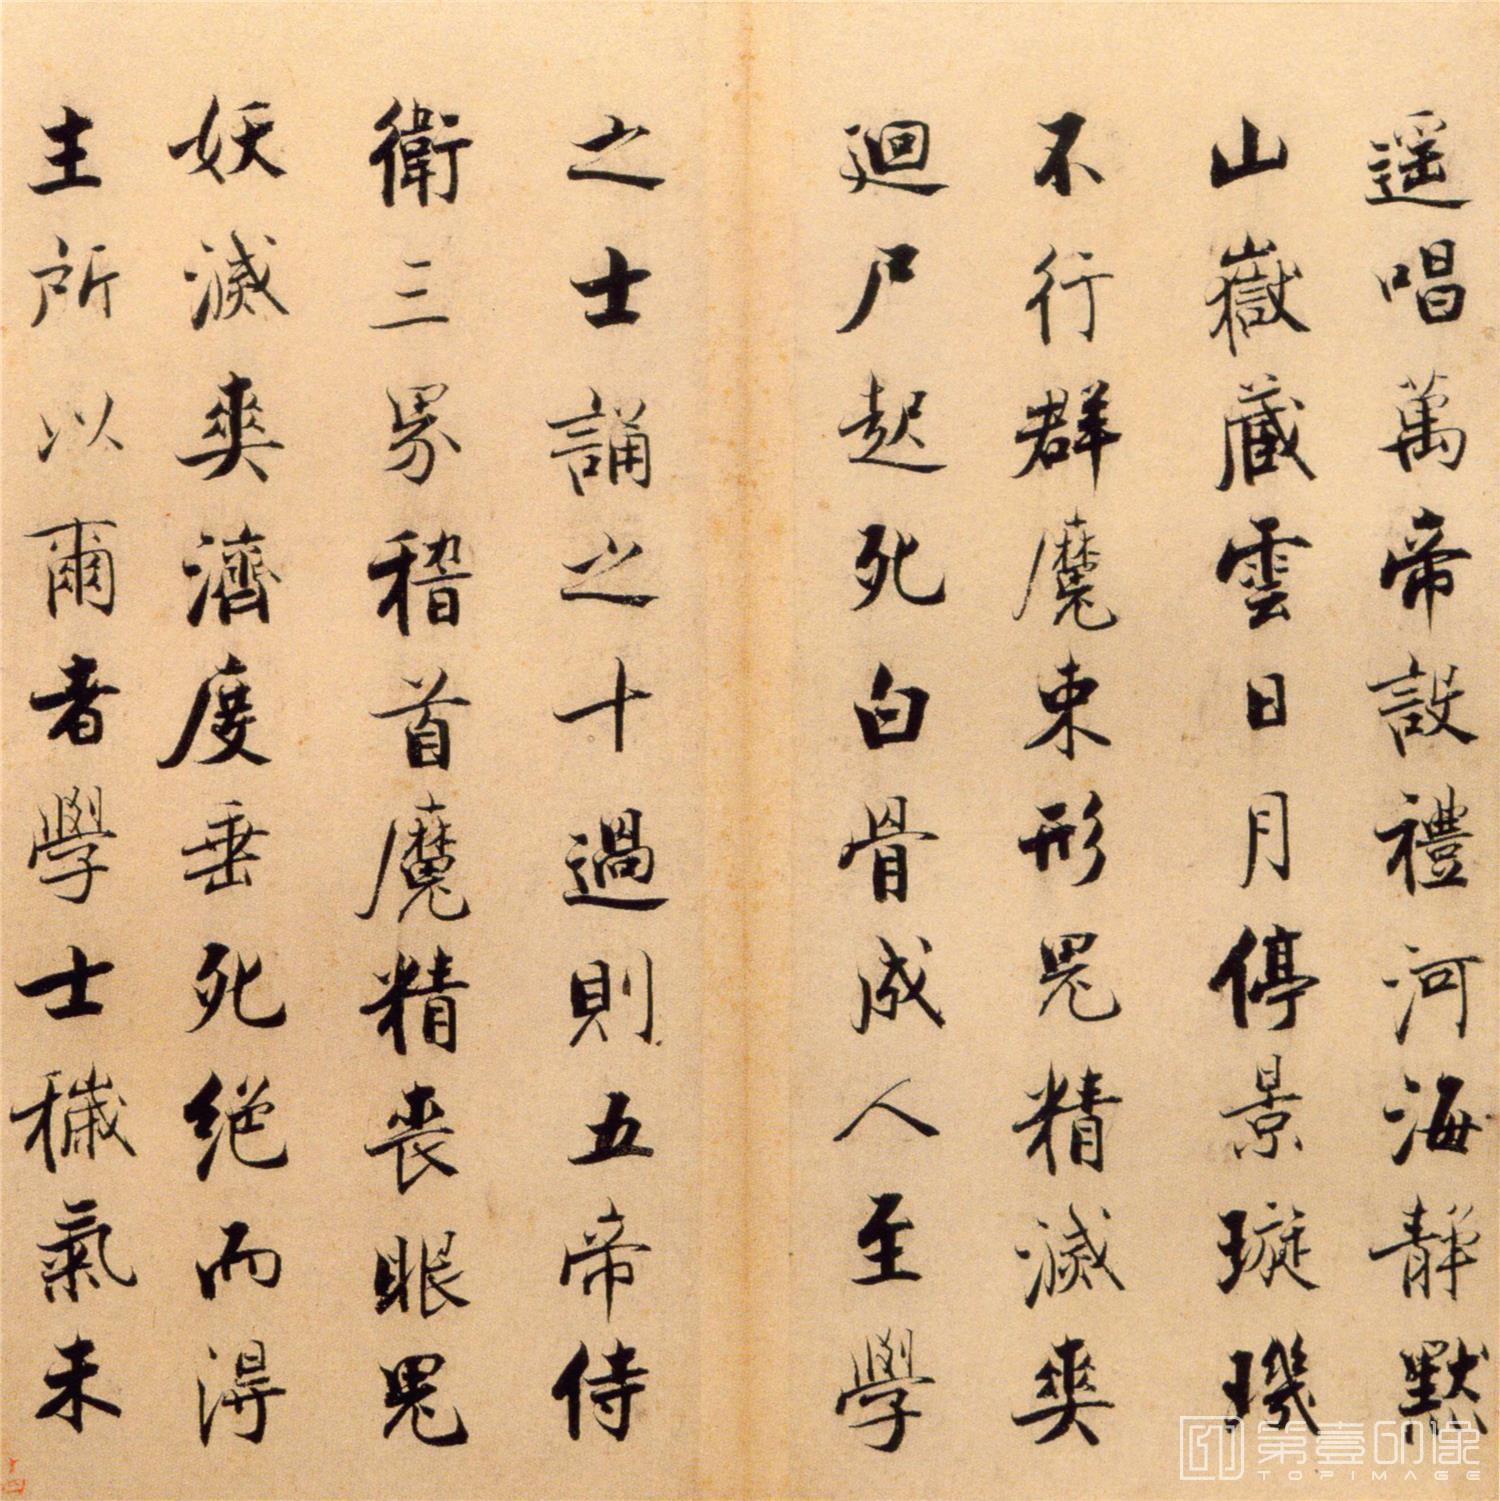 遥唱萬帝設禮河海靜默
山嶽藏雲日月停景璇璣
不行群魔束形鬼精滅爽
迴尸起死白骨成人至學
之士誦之十過則五帝侍
衛三界稽首魔精喪眼鬼
妖滅爽濟度垂死絕而得
主所以爾者學士穢氣未
十四
第壹印像
TOPIMAGE